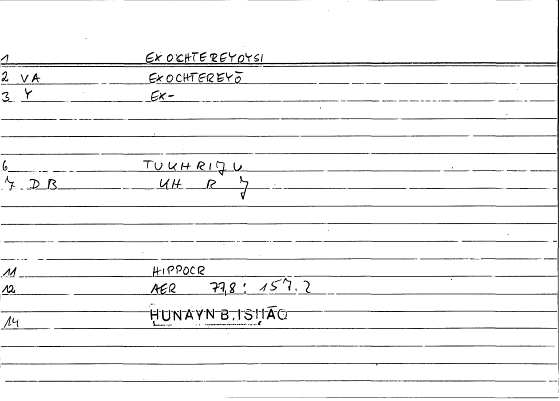 1 EXOCHTEREYOYSI
2 VA EXOCHTEREYŌ
3 Y EX-
6 TUUHRIJU
7 DB UH R J
11 HIPPOCR
12 AER 77,8: 157.2
14 HUNAYN B. ISḤĀQ